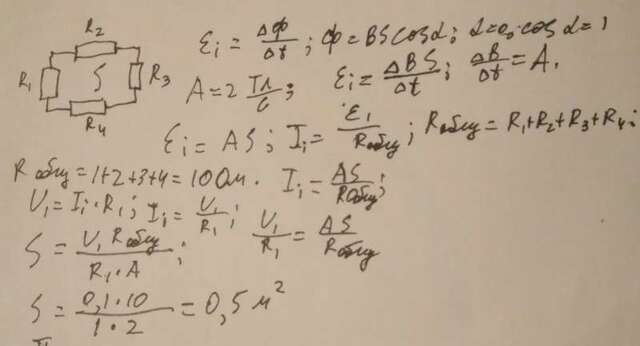 R₂
R₁ S R₃
R₄
εᵢ = ΔФ/Δt ; Ф = BS cos α; α=0, cos α = 1
A = 2 Тл/с ; εᵢ = ΔBS/Δt ; ΔB/Δt = A.
εᵢ = AS ; Iᵢ = ε₁/Rобщ ; Rобщ = R₁+R₂+R₃+R₄;
Rобщ = 1+2+3+4 = 10 Ом. Iᵢ = AS/Rобщ ;
U₁ = Iᵢ·R₁ ; Iᵢ = U₁/R₁ ; U₁/R₁ = AS/Rобщ
S = U₁Rобщ/R₁·A ;
S = 0,1·10/1·2 = 0,5 м²